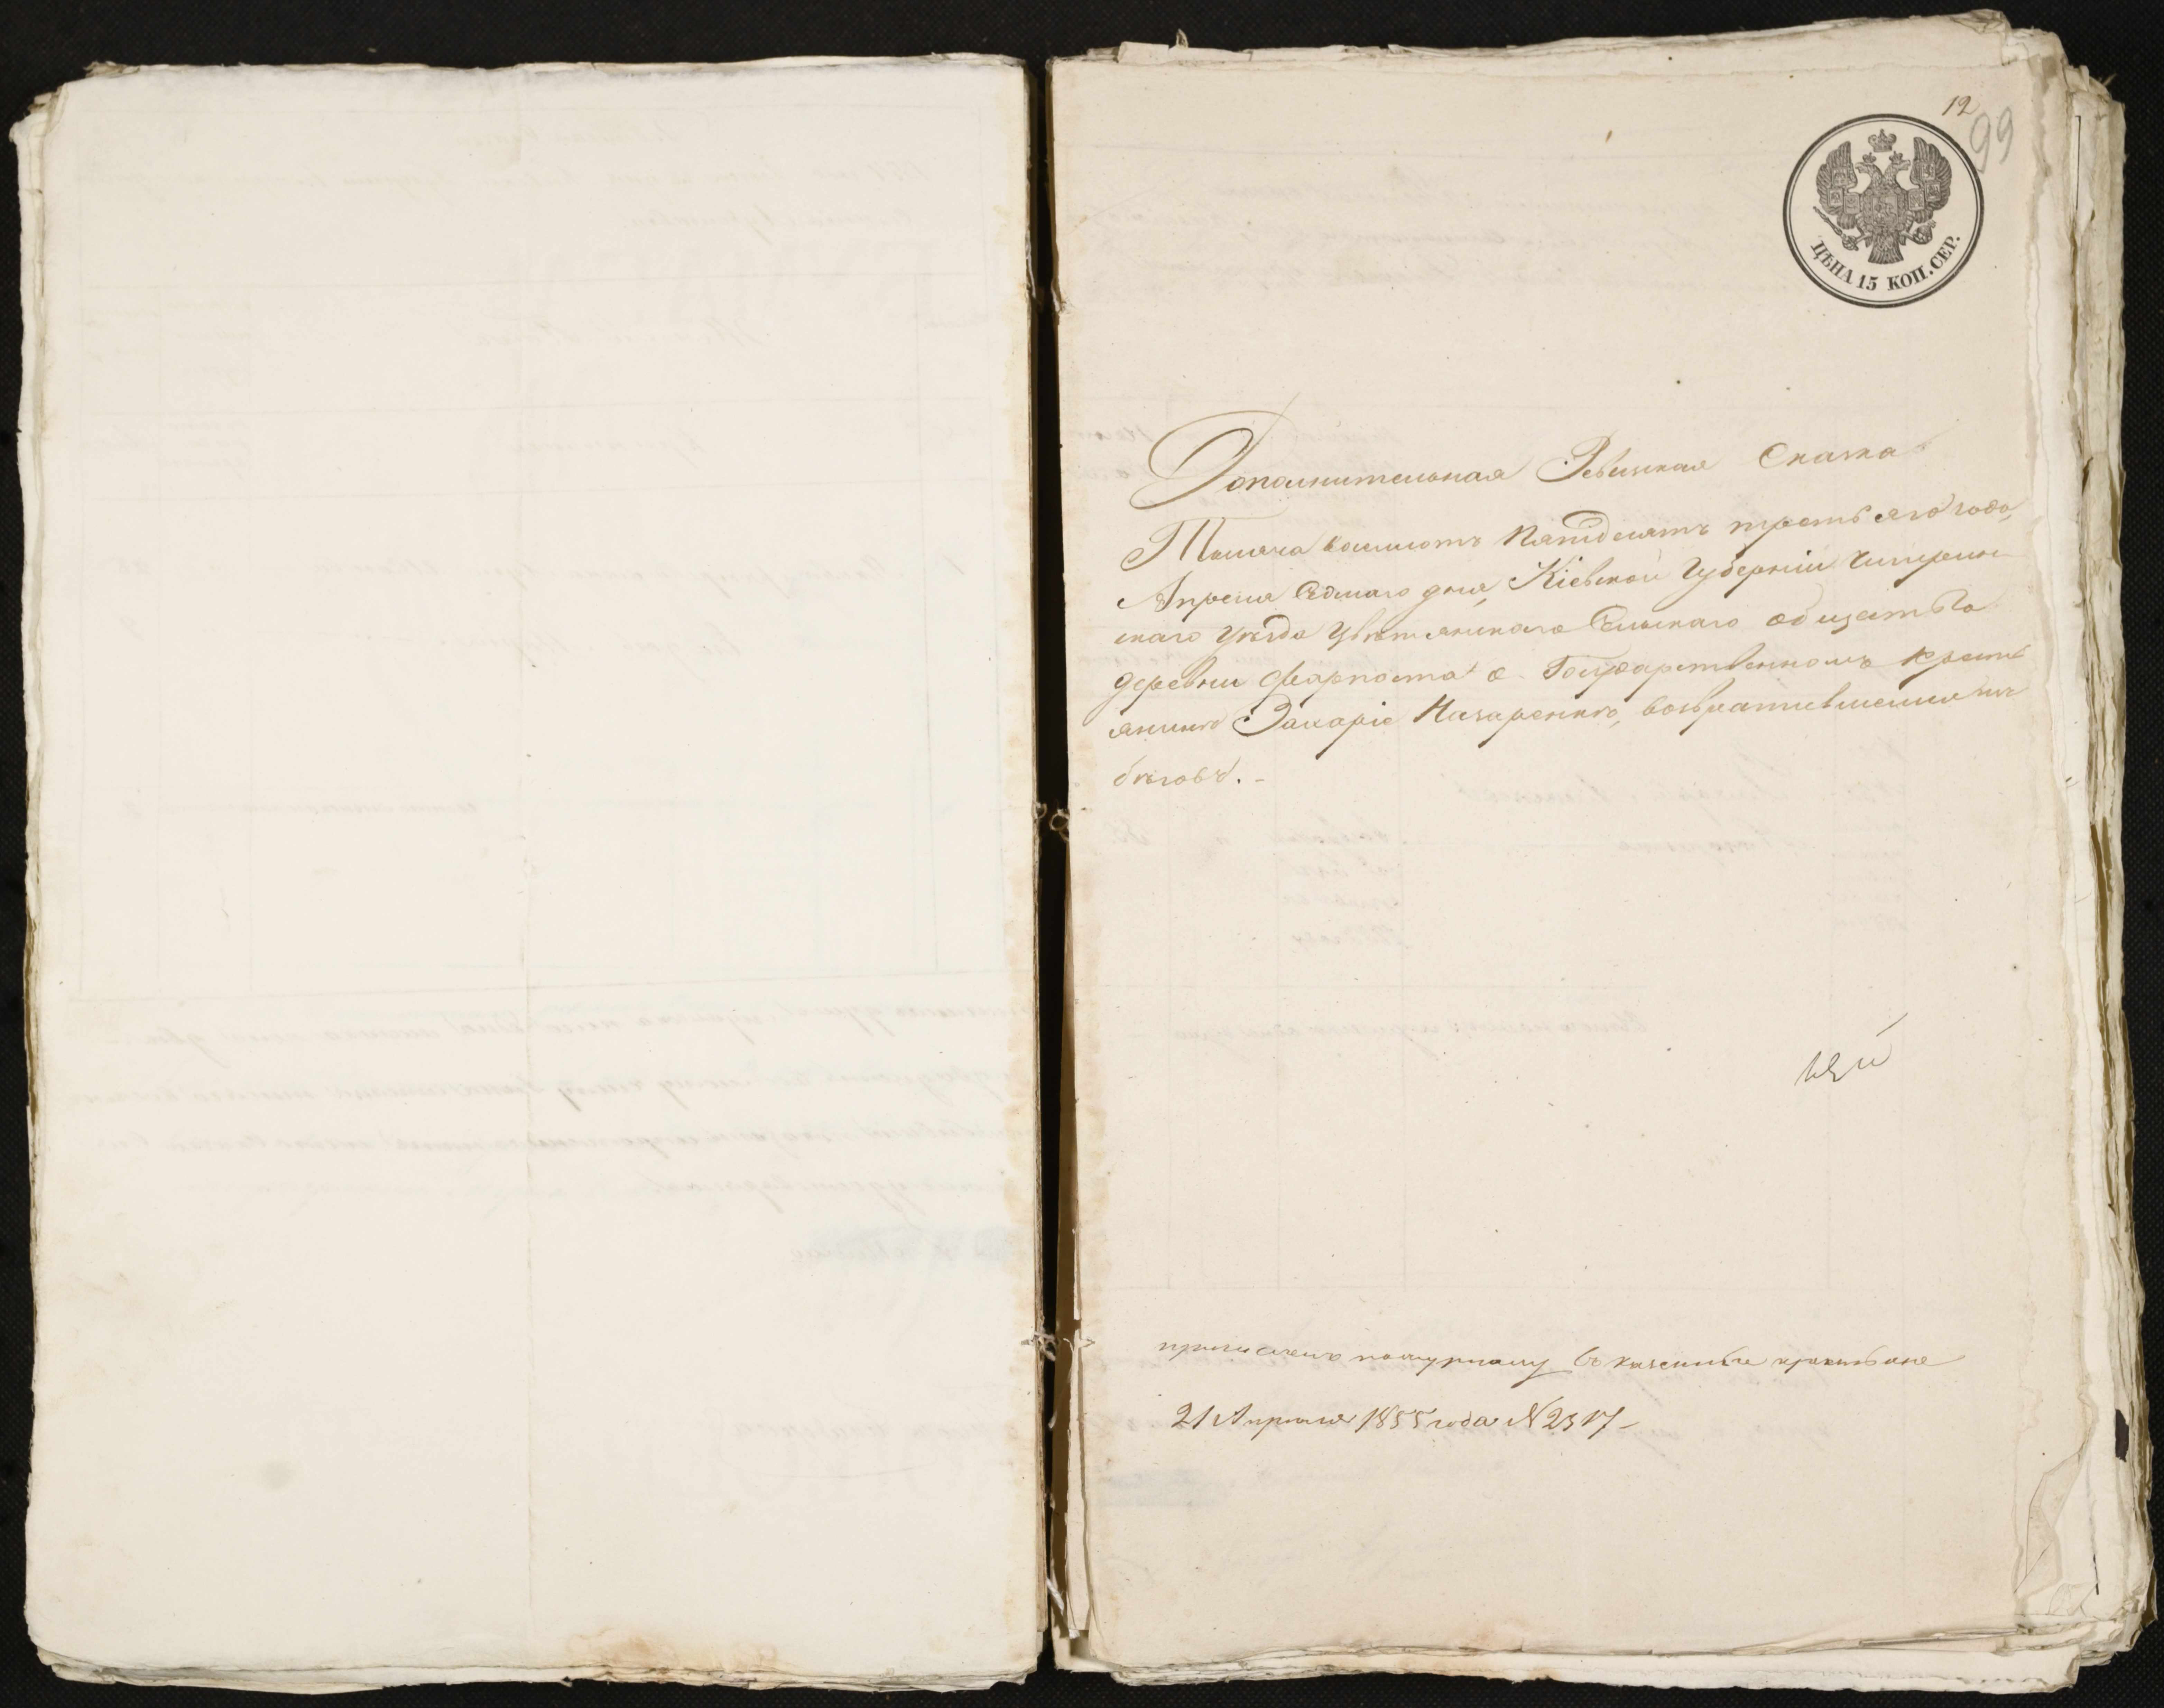 12
99
ЦѢНА 15 КОП. СЕР.
Дополнительная Ревизская Сказка
Тысяча восемсотъ Пятдесятъ третьяго года,
Апреля Седмаго дня, Кіевской Губерніи Чигирин
скаго Уѣзда Цвѣтянскаго Сельскаго общества
деревни Фарпоста о Государственномъ Кресть
янинѣ Захаріе Назаренкѣ, возвратившемся изъ
бѣговъ. –
причисленъ по журналу въ казенные крестьяне
21 Апреля 1855 года № 2317 –